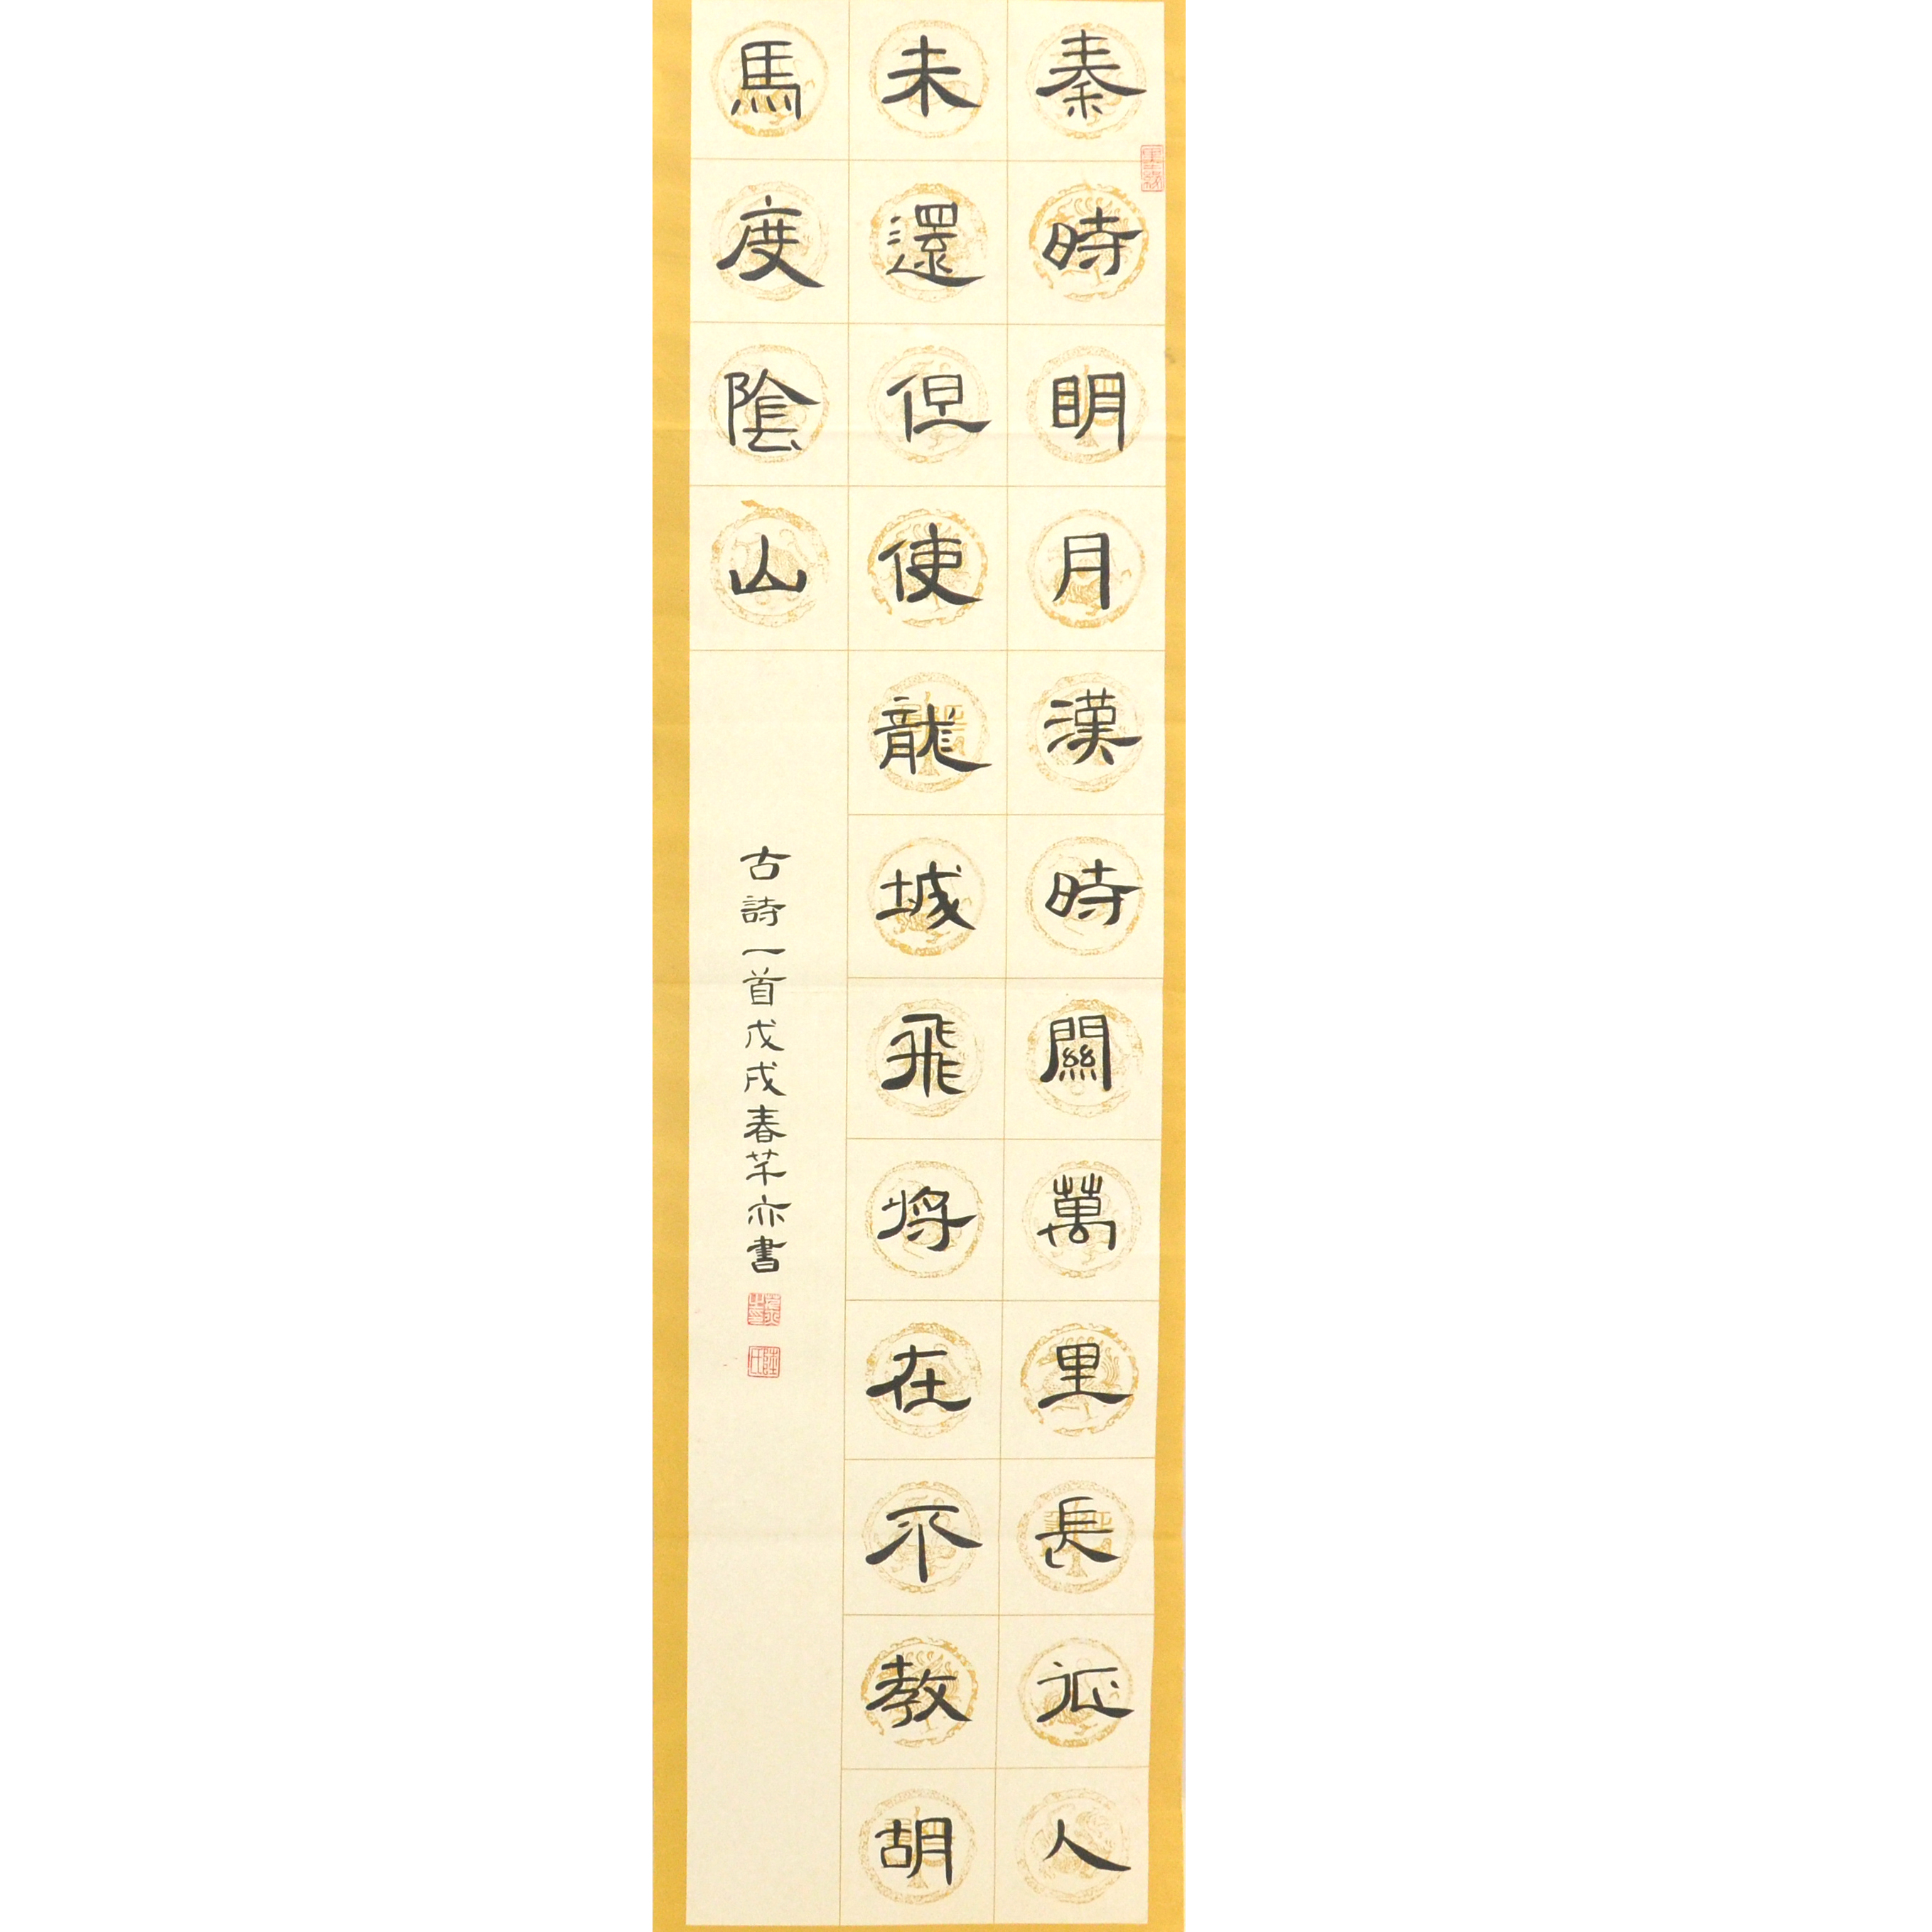 秦時明月漢時關萬里長征人
未還但使龍城飛將在不教胡
馬度陰山
古詩一首戊戌春芊亦書